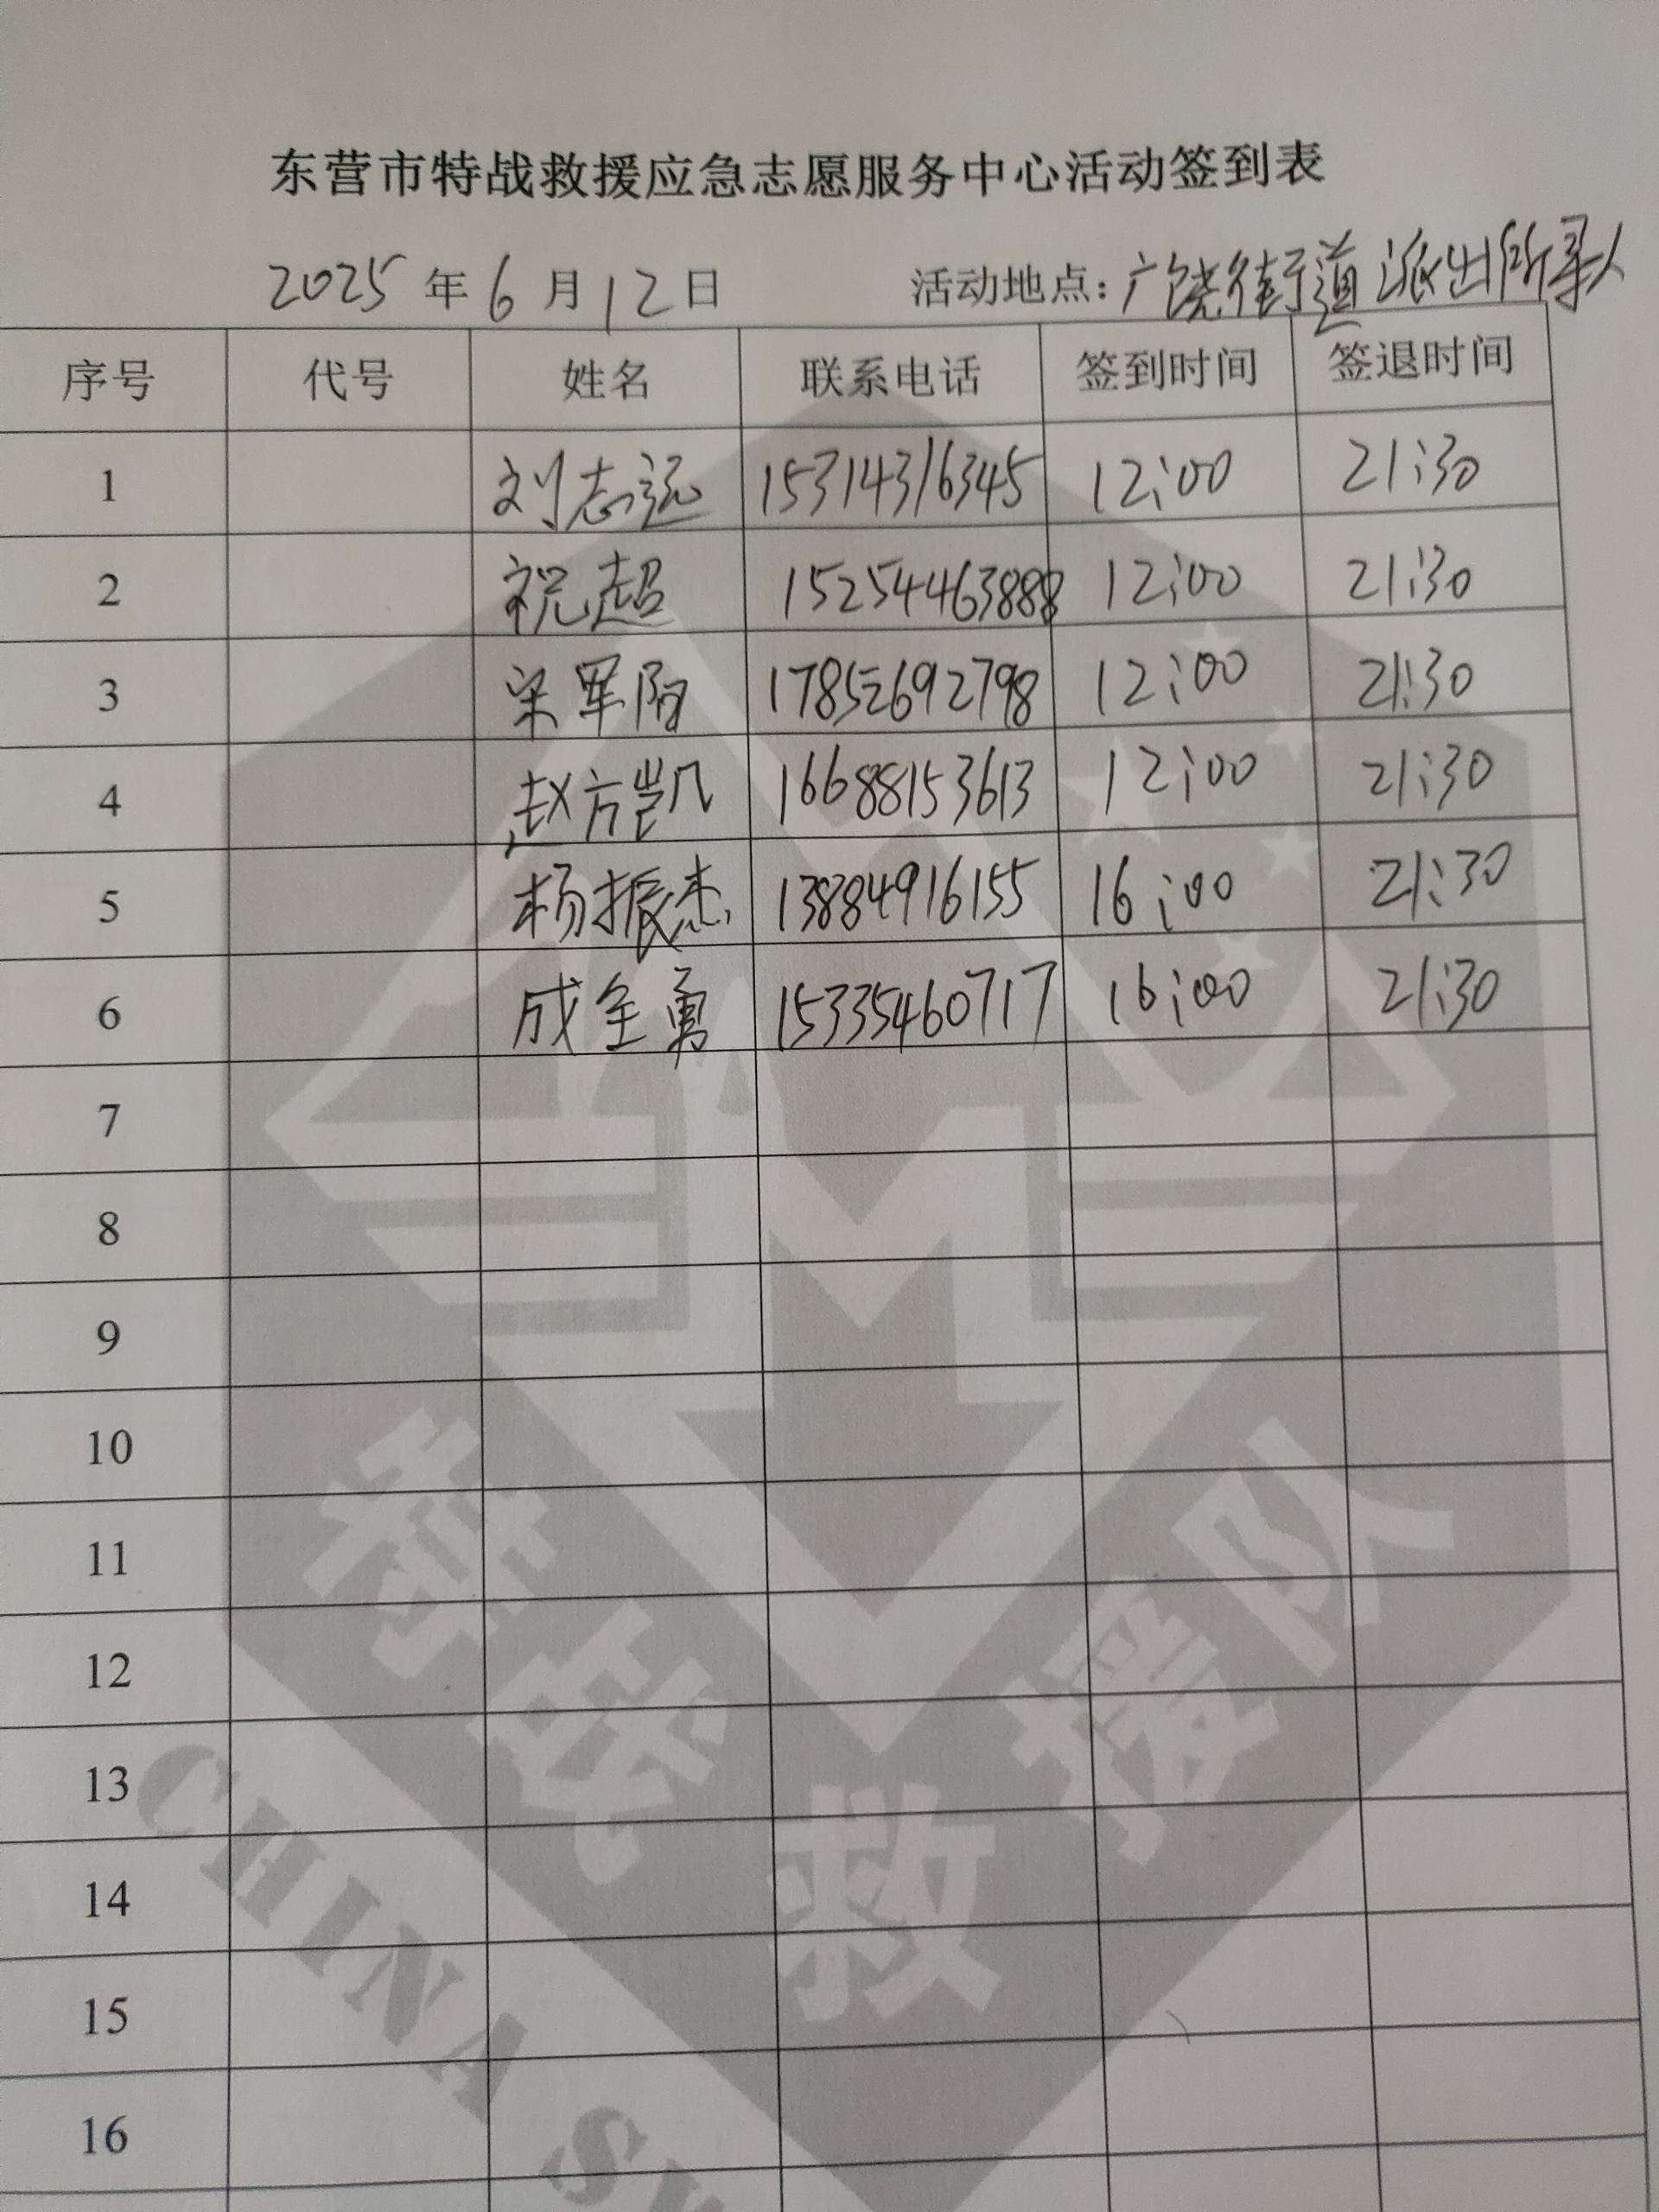 东营市特战救援应急志愿服务中心活动签到表
2025年6月12日 活动地点：广饶街道派出所寻人
序号 代号 姓名 联系电话 签到时间 签退时间
1 刘志远 15314316345 12:00 21:30
2 祝超 15254463888 12:00 21:30
3 宋军阳 17852692798 12:00 21:30
4 赵方凯 16688153613 12:00 21:30
5 杨振杰 13884916155 16:00 21:30
6 成全勇 15335460717 16:00 21:30
7
8
9
10
11
12
13
14
15
16
特战救援队
CHINA SW